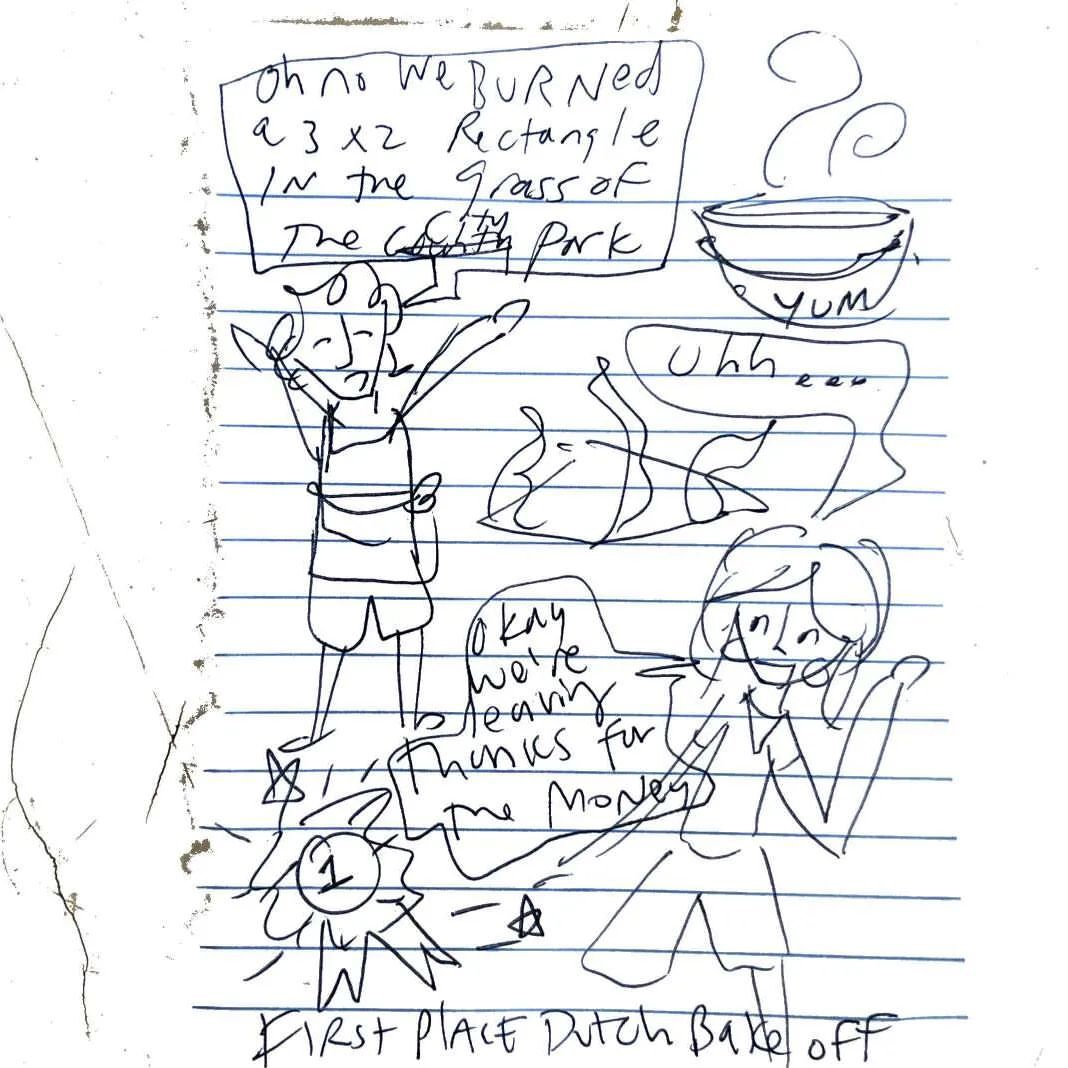 Oh no We BURNed
a 3 x 2 Rectangle
IN the grass of
The City Park
YUM
Uhh...
Okay
we're
leaving
Thanks for
the Money
1
FIRST PLACE Dutch Bake off